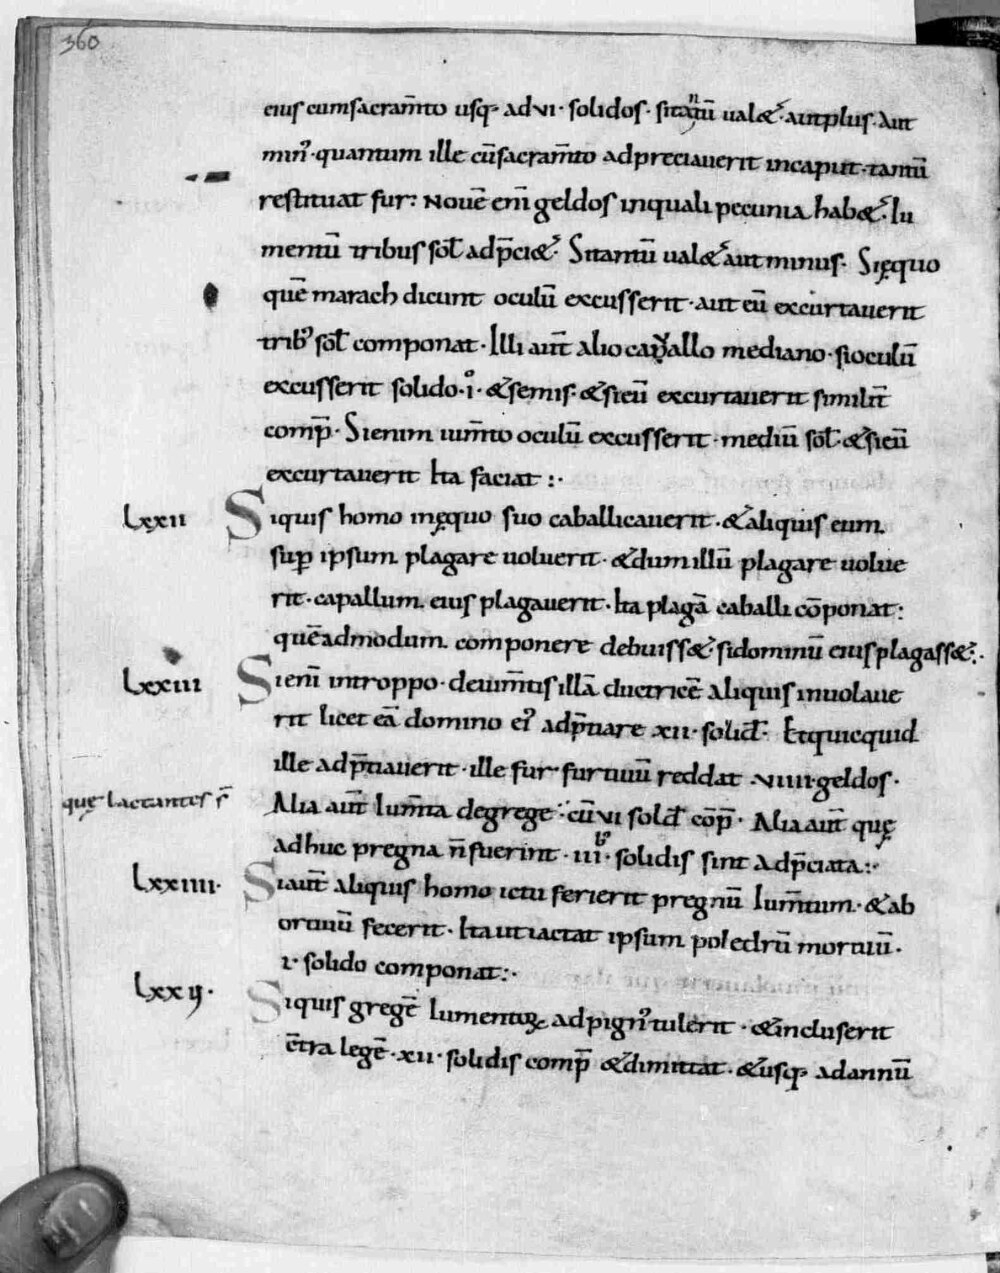 360
eius cum sacram̄to usq; ad vi · solidos · si tantū ual& · aut plus · Aut
min᷒ · quantum ille cū sacram̄to adpreciauerit in caput · tantū
restituat fur: Nouē enī geldos in quali pecunia hab&. Iu
mentū tribus sol̄ adp̄ci&. Si tantū ual& aut minus. Si ęquo
quē marach dicunt oculū excusserit · aut eū excurtauerit
trib᷒ sol̄ componat · Illi aut̄ alio cauallo mediano · si oculū
excusserit solido · i᷒ · & semis · & si eū excurtauerit similit̄
comp̄ · Si enim ium̄to oculū excusserit · mediū sol̄ · & si eū
excurtauerit Ita faciat :·
Lxxii Siquis homo in ęquo suo caballicauerit · & aliquis eum
sup̄ ipsum plagare uoluerit · & dum illū plagare uolue
rit · capallum eius plagauerit · Ita plagā caballi cōponat:
quēadmodum componere debuiss& · si dominū eius plagass& ·
Lxxiii Si enī in troppo · de ium̄tis illā ductricē aliquis inuolaue
rit licet eā domino ei᷒ adp̄tiare xii · solid̄ · Et quicquid
ille adp̄tiauerit · ille fur furtiuū reddat · viiii · geldos ·
quę lactantes s̄
Alia aut̄ Ium̄ta de grege : cū vi sold̄ cōp̄ · Alia aut̄ quę
adhuc pregna n̄ fuerint · iii᷒ · solidis sint adp̄ciata :·
Lxxiiii · Si aut̄ aliquis homo ictu ferierit pregnū Ium̄tum · & ab
ortiuū fecerit · Ita ut iactat ipsum poledrū mortuū ·
i · solido componat :·
Lxxv · Siquis gregē Iumentoꝝ ad pign᷒ tulerit · & incluserit
cōtra legē · xii · solidis comp̄ & dimittat · & usq; ad annū